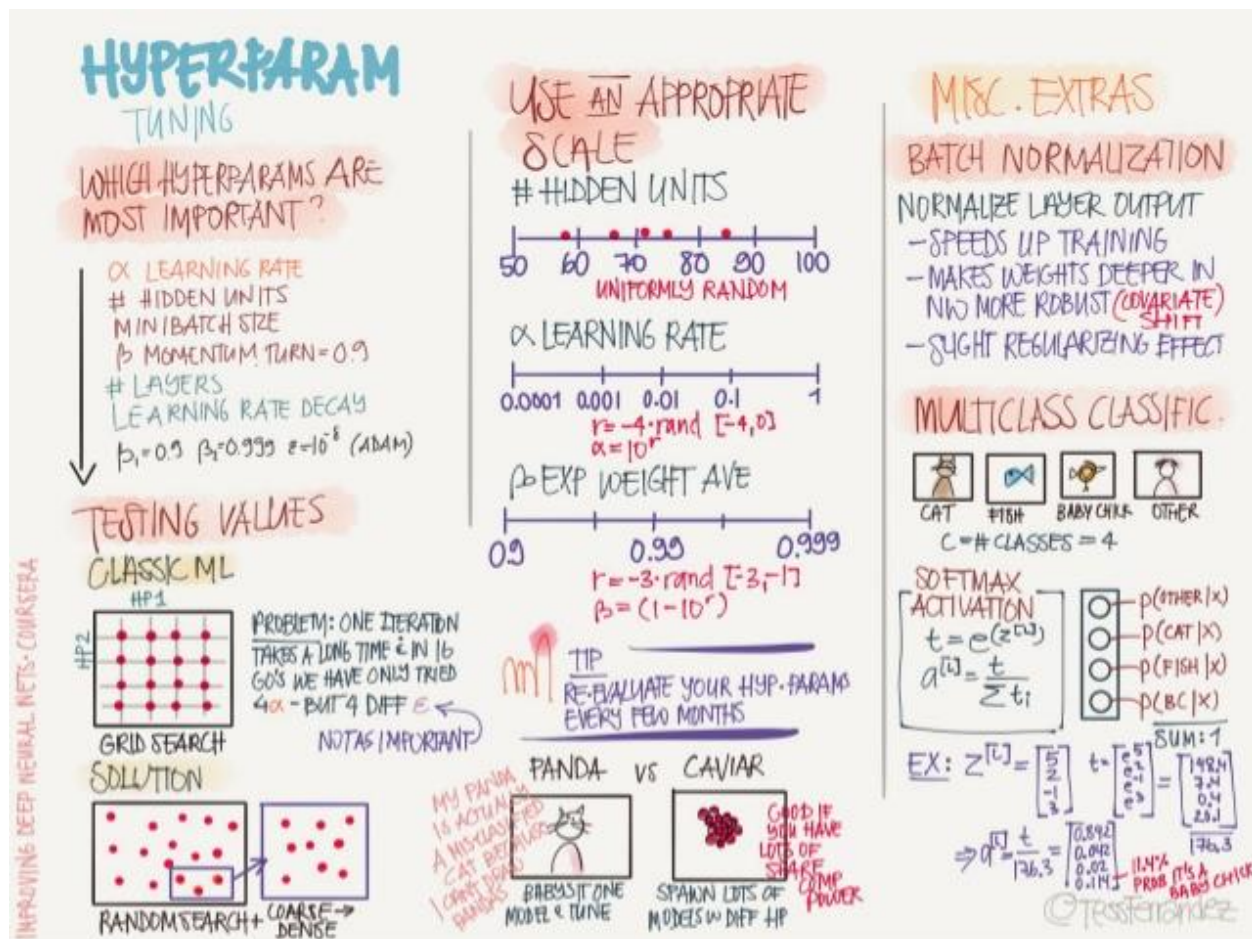 HYPERPARAM
TUNING
WHICH HYPERPARAMS ARE
MOST IMPORTANT?
α LEARNING RATE
# HIDDEN UNITS
MINIBATCH SIZE
β MOMENTUM TURN = 0.9
# LAYERS
LEARNING RATE DECAY
β₁=0.9 β₂=0.999 ε=10⁻⁸ (ADAM)
TESTING VALUES
CLASSIC ML
HP1
HP2
PROBLEM: ONE ITERATION
TAKES A LONG TIME & IN 16
GO'S WE HAVE ONLY TRIED
4α - BUT 4 DIFF ε
NOT AS IMPORTANT
GRID SEARCH
SOLUTION
RANDOM SEARCH +
COARSE →
DENSE
IMPROVING DEEP NEURAL NETS · COURSERA
USE AN APPROPRIATE
SCALE
# HIDDEN UNITS
50 60 70 80 90 100
UNIFORMLY RANDOM
α LEARNING RATE
0.0001 0.001 0.01 0.1 1
r = -4·rand [-4,0]
α = 10^r
β EXP WEIGHT AVE
0.9 0.99 0.999
r = -3·rand [-3,-1]
β = (1-10^r)
TIP
RE-EVALUATE YOUR HYP. PARAMS
EVERY FEW MONTHS
PANDA VS CAVIAR
MY PANDA
IS ACTUALLY
A MISCLASSIFIED
CAT BECAUSE
I CAN'T DRAW
PANDAS
BABYSIT ONE
MODEL & TUNE
GOOD IF
YOU HAVE
LOTS OF
SHARE
COMP
POWER
SPAWN LOTS OF
MODELS W DIFF HP
MISC. EXTRAS
BATCH NORMALIZATION
NORMALIZE LAYER OUTPUT
- SPEEDS UP TRAINING
- MAKES WEIGHTS DEEPER IN
NW MORE ROBUST (COVARIATE)
SHIFT
- SLIGHT REGULARIZING EFFECT
MULTICLASS CLASSIFIC.
CAT FISH BABY CHICK OTHER
C = # CLASSES = 4
SOFTMAX
ACTIVATION
t = e^(z^[L])
a^[L] = t / Σ tᵢ
P(OTHER|X)
P(CAT|X)
P(FISH|X)
P(BC|X)
SUM: 1
EX: z^[L] = [5 2 -1 3] t = [e^5 e^2 e^-1 e^3] = [148.4 7.4 0.4 20.1]
176.3
⇒ a^[L] = t / 176.3 = [0.842 0.042 0.02 0.114]
11.4%
PROB IT'S A
BABY CHICK
© TessFerrandez